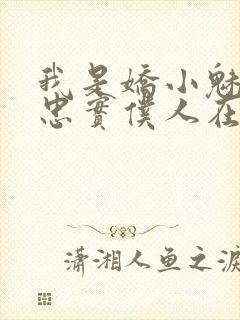 我是嬌小魅
忠實僕人在
瀟湘人魚之淚